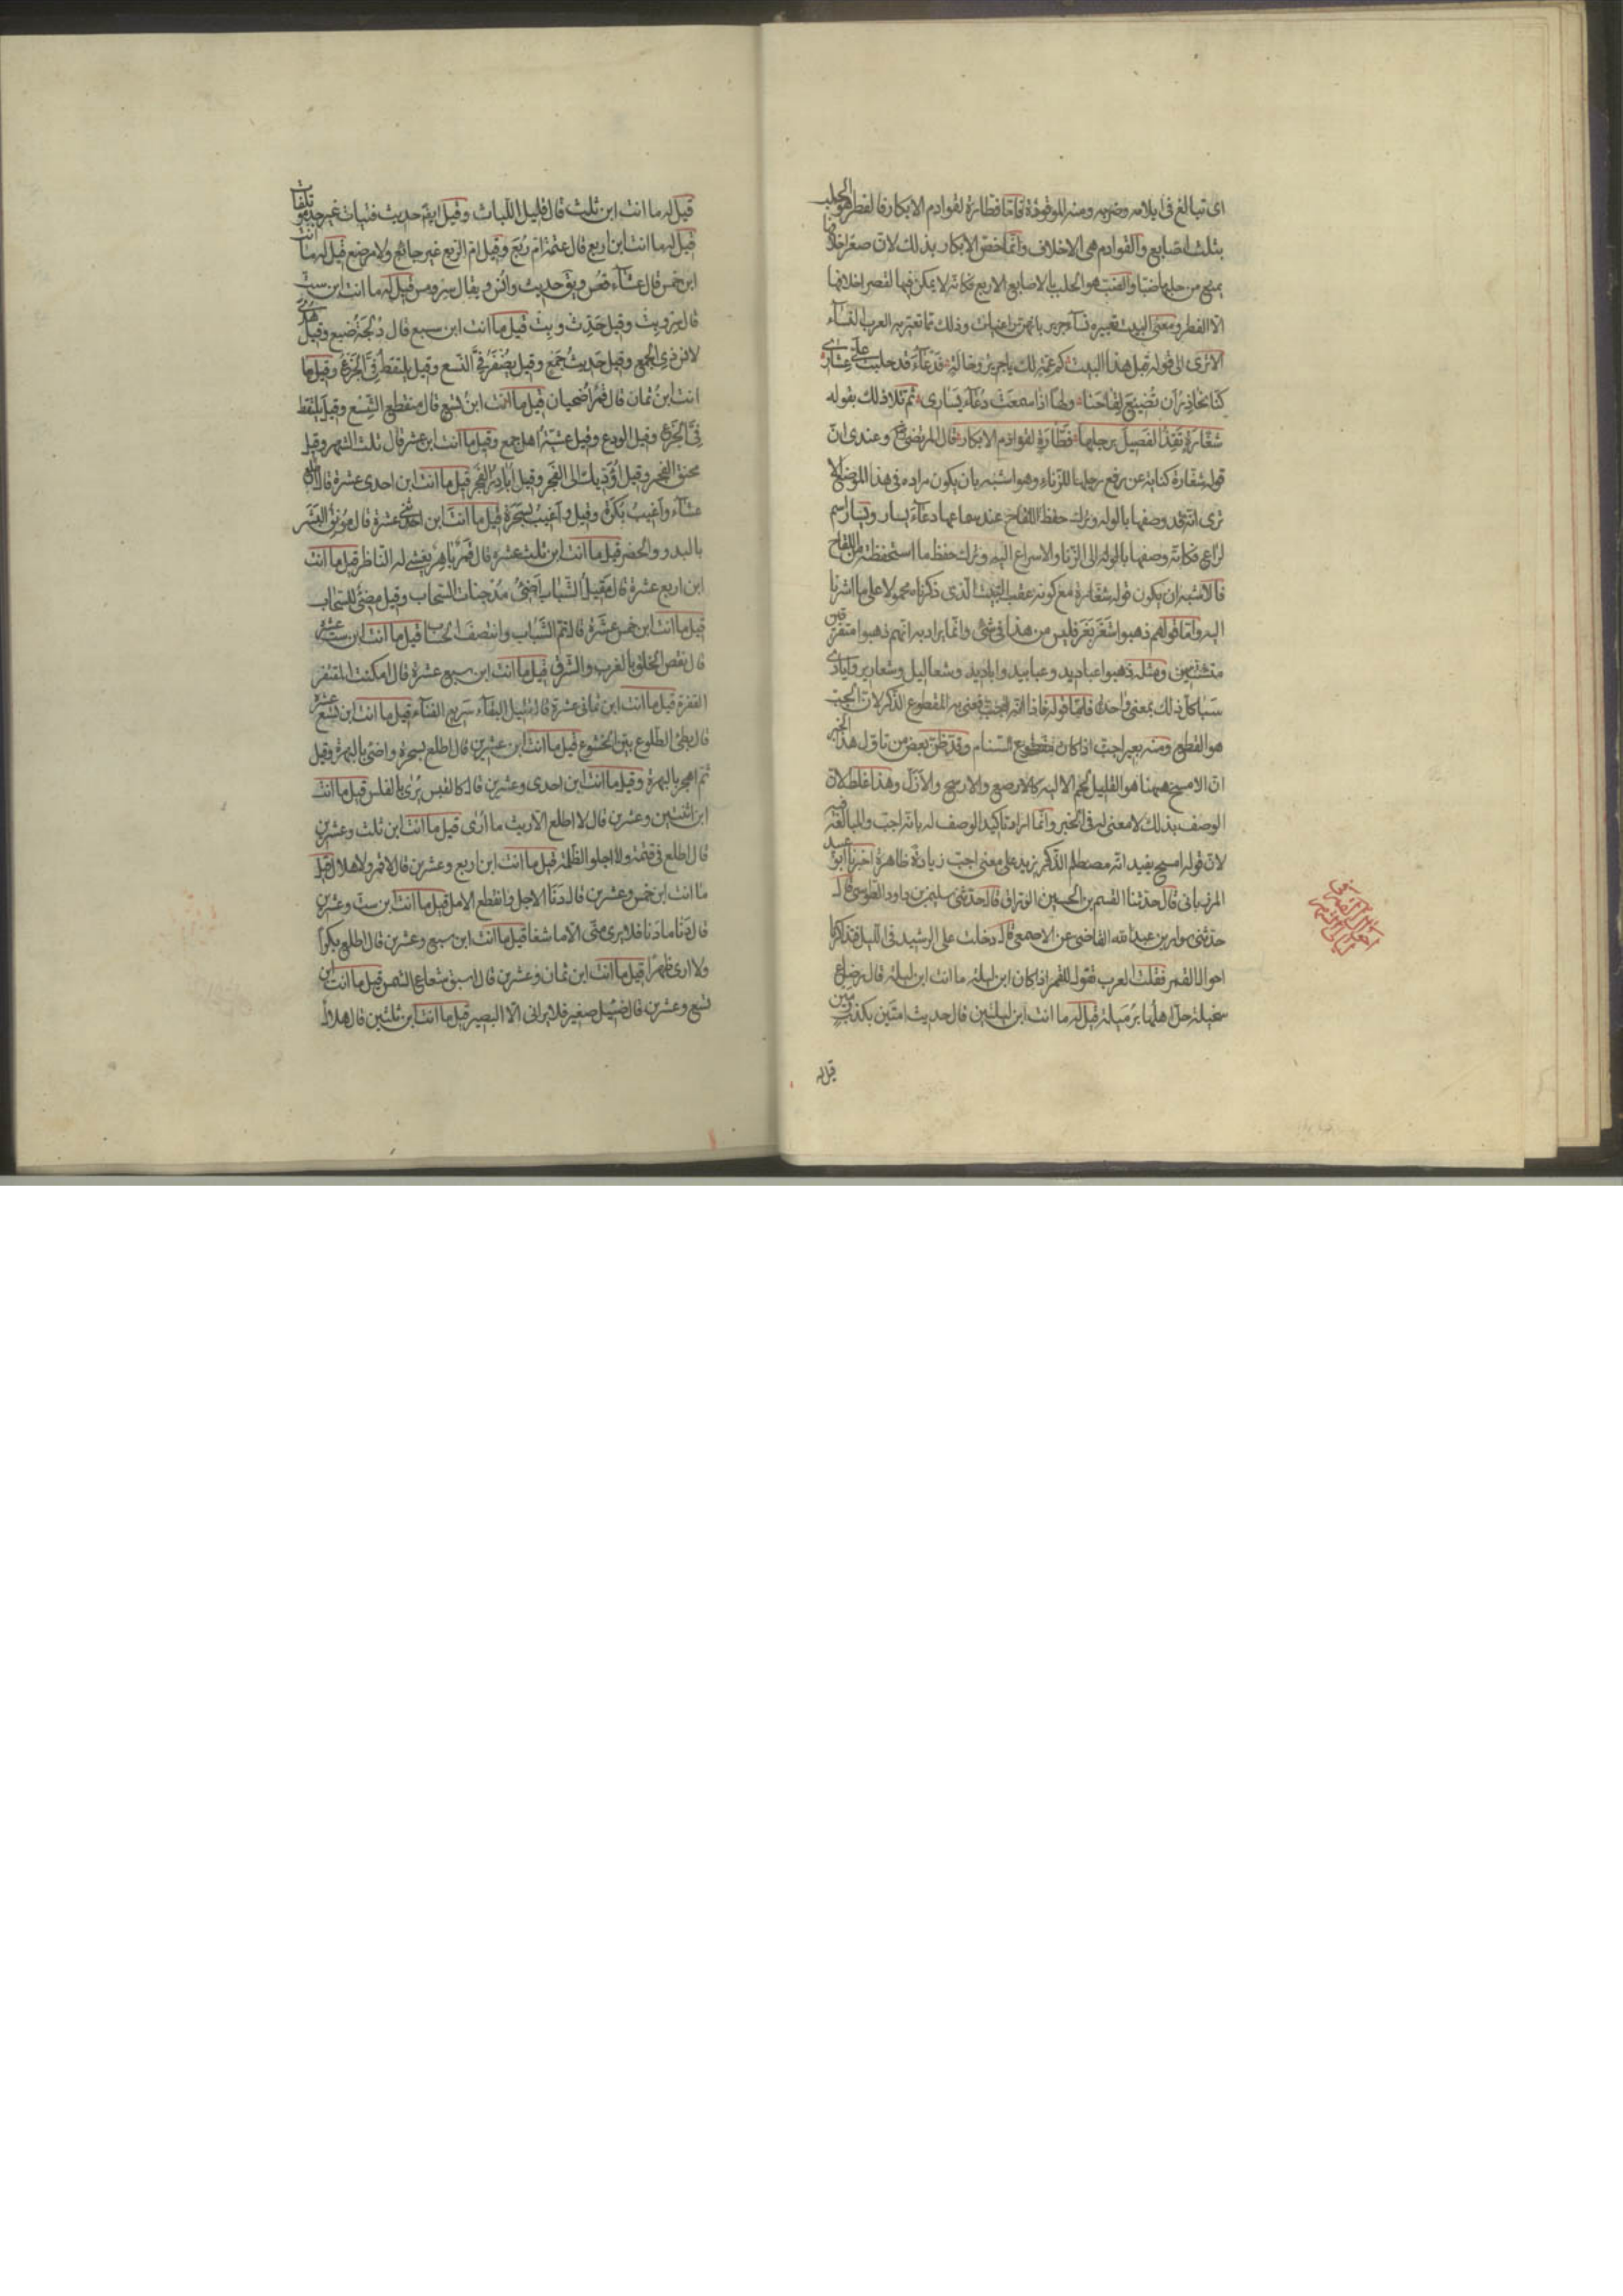 اى تبالغ فى ايلامه وضربه ومنه الموقوذة فاما فطارة لقوادم الابكار فالفطر هو الحلب
بثلث اصابع والقوادم هى الاخلاف وانما خص الابكار بذلك لان صغر اخلافها
يمنع من حلبها ضبا والضب هو الحلب بالاصابع الاربع فكانه لا يمكن فيها لقصر اخلافها
الا الفطر ومعنى البيت تعييره نساء جرير بانهن راعيات وذلك مما تعير به العرب النساء
الا ترى الى قوله قبل هذا البيت كم عمة لك يا جرير وخالة فدعاء قد حلبت على عشارى
كنا نحاذر ان تضيع لقاحنا ولها اذا سمعت دعاء يسارى ثم تلا ذلك بقوله
شغارة تقذ الفصيل برجلها فطارة لقوادم الابكار قال المرتضى وعندى ان
قوله شغارة كناية عن رفع رجلها للزناء وهو اشبه بان يكون مراده فى هذا الموضع الا
ترى انه قد وصفها بالوله وترك حفظ اللقاح عند سماعها دعاء يسار ويسار اسم
لراع فكانه وصفها بالوله الى الزنا والاسراع اليه وترك حفظ ما استحفظته من اللقاح
فالاشبه ان يكون قوله شغارة مع كونه عقيب البيت الذى ذكرناه محمولا على ما اشرنا
اليه واما قولهم ذهبوا شغر بغر فليس من هذا فى شئ وانما يراد به انهم ذهبوا متفرقين
متشتتين ومثله ذهبوا عباديد وعبابيد واباديد وشعاليل وشعارير وايادى
سبا كل ذلك بمعنى واحد فاما قوله فاذا انه اجب فعنى به المقطوع الذكر لان الجب
هو القطع ومنه بعير اجب اذا كان مقطوع السنام وقد ظن بعض من تاول هذا الخبر
ان الامسح ههنا هو القليل لحم الالية كالارصع والارسح والازل وهذا غلط لان
الوصف بذلك لا معنى له فى الخبر وانما اراد تاكيد الوصف له بانه اجب والمبالغة فيه
لان قوله امسح يفيد انه مصطلم الذكر يزيد على معنى اجب زيادة ظاهرة اخبرنا ابو عبيد
المرزبانى قال حدثنا القسم بن الحسين الوراق قال حدثنى سليمن بن داود الطوسى قال
حدثنى سوار بن عبد الله القاضى عن الاصمعى قال دخلت على الرشيد فى الليل فتذاكرنا
احوال القمر فقلت العرب تقول للقمر اذا كان ابن ليلة ما انت ابن ليلة قال رضاع
سخيلة حل اهلها برميلة قيل له ما انت ابن ليلتين قال حديث امتين بكذب ومين
قيل له
قيل له ما انت ابن ثلث قال قليل اللباث وقيل ايضا حديث فتيات غير جد موتلفات
قيل له ما انت ابن اربع قال عتمة ام ربع وقيل ام الربع غير جائع ولا مرضع قيل له ما انت
ابن خمس قال عشاء قعس ويق حديث وانس ويقال سر ومس قيل له ما انت ابن ست
قال سر وبت وقيل حدث وبت قيل ما انت ابن سبع قال دلجة ضبع وقيل هدى
لانس ذى الجمع وقيل حديث جمع وقيل يصفر فى النسع وقيل يلتقط فى الجزع وقيل ما
انت ابن ثمان قال قمر اضحيان قيل ما انت ابن تسع قال منقطع الشسع وقيل يلتقط
فى الجزع وقيل الودع وقيل عشية اهل جمع وقيل ما انت ابن عشر قال ثلث الشهر وقيل
محنق الفجر وقيل اؤديك الى الفجر وقيل ابادر الفجر قيل ما انت ابن احدى عشرة قال ارى
عشاء واغيب بكرة وقيل واغيب بسحرة قيل ما انت ابن اثنتى عشرة قال مونق البشر
بالبدو والحضر قيل ما انت ابن ثلث عشرة قال قمر باهر يعشى له الناظر قيل ما انت
ابن اربع عشرة قال مقبل الشباب اضئ مدجنات السحاب وقيل مضئ للسحاب
قيل ما انت ابن خمس عشرة قال تم الشباب وانتصف الحساب قيل ما انت ابن ست عشرة
قال نقص الخلق بالغرب والشرق قيل ما انت ابن سبع عشرة قال امكنت المقتفر
القفرة قيل ما انت ابن ثمانى عشرة قال قليل البقاء سريع الفناء قيل ما انت ابن تسع عشرة
قال بطئ الطلوع بين الخشوع قيل ما انت ابن عشرين قال اطلع بسحرة واضئ بالبهرة وقيل
ثم اهجر بالبهرة وقيل ما انت ابن احدى وعشرين قال كالقبس يرى بالغلس قيل ما انت
ابن اثنتين وعشرين قال لا اطلع الا ريث ما ارى قيل ما انت ابن ثلث وعشرين
قال اطلع فى قتمة ولا اجلو الظلمة قيل ما انت ابن اربع وعشرين قال لا قمر ولا هلال قيل
ما انت ابن خمس وعشرين قال دنا الاجل وانقطع الامل قيل ما انت ابن ست وعشرين
قال دنا ما دنا فلا يرى منى الا ما شفا قيل ما انت ابن سبع وعشرين قال اطلع بكرا
ولا ارى ظهرا قيل ما انت ابن ثمان وعشرين قال اسبق شعاع الشمس قيل ما انت ابن
تسع وعشرين قال ضئيل صغير فلا يرانى الا البصير قيل ما انت ابن ثلثين قال هلال